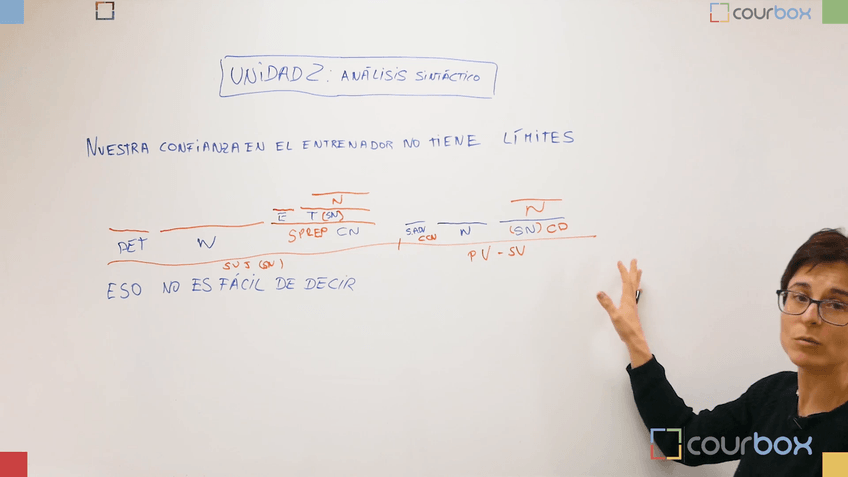 courbox
UNIDAD 2: ANÁLISIS SINTÁCTICO
NUESTRA CONFIANZA EN EL ENTRENADOR NO TIENE LÍMITES
N
E T (SN) N
DET N SPREP CN S.ADV N (SN) CD
CCN
SUJ (SN) PV - SV
ESO NO ES FÁCIL DE DECIR
courbox